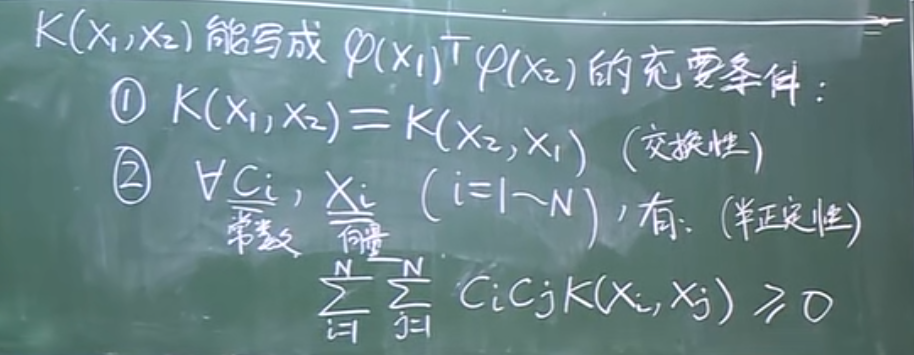 K(X₁,X₂)能写成 φ(X₁)ᵀφ(X₂)的充要条件:
① K(X₁,X₂)=K(X₂,X₁) (交换性)
② ∀Cᵢ, Xᵢ (i=1~N),有: (半正定性)
常数 向量
∑_{i=1}^{N} ∑_{j=1}^{N} CᵢCⱼK(Xᵢ,Xⱼ)≥0